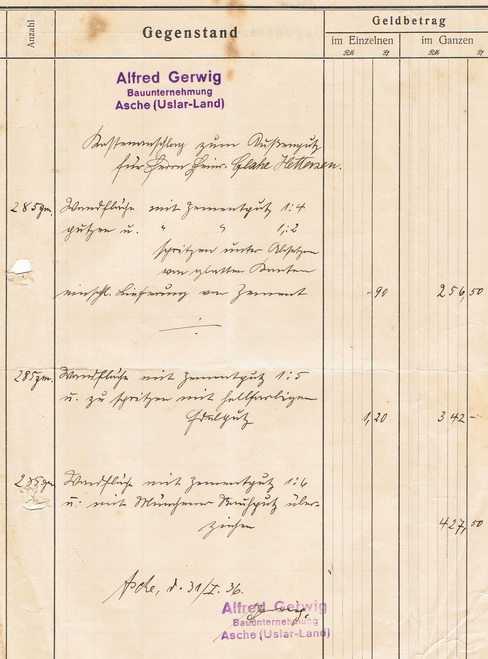 Anzahl Gegenstand Geldbetrag
im Einzelnen im Ganzen
RM Pf RM Pf
Alfred Gerwig
Bauunternehmung
Asche (Uslar-Land)
Kostenanschlag zum Außenputz
für Herrn Heinr. Glahe Hettensen.
285 qm. Wandfläche mit Zementputz 1:4
putzen u. " " 1:2
spritzen unter Absetzen
von glatten Kanten
einschl. Lieferung von Zement -90 256,50
285 qm. Wandfläche mit Zementputz 1:5
u. zu spritzen mit hellfarbigen
Edelputz 1,20 342 -
285 qm Wandfläche mit Zementputz 1:6
u. mit Münchener Rauhputz über-
ziehen 427,50
Asche, d. 31/I. 36.
Alfred Gerwig
Bauunternehmung
Asche (Uslar-Land)